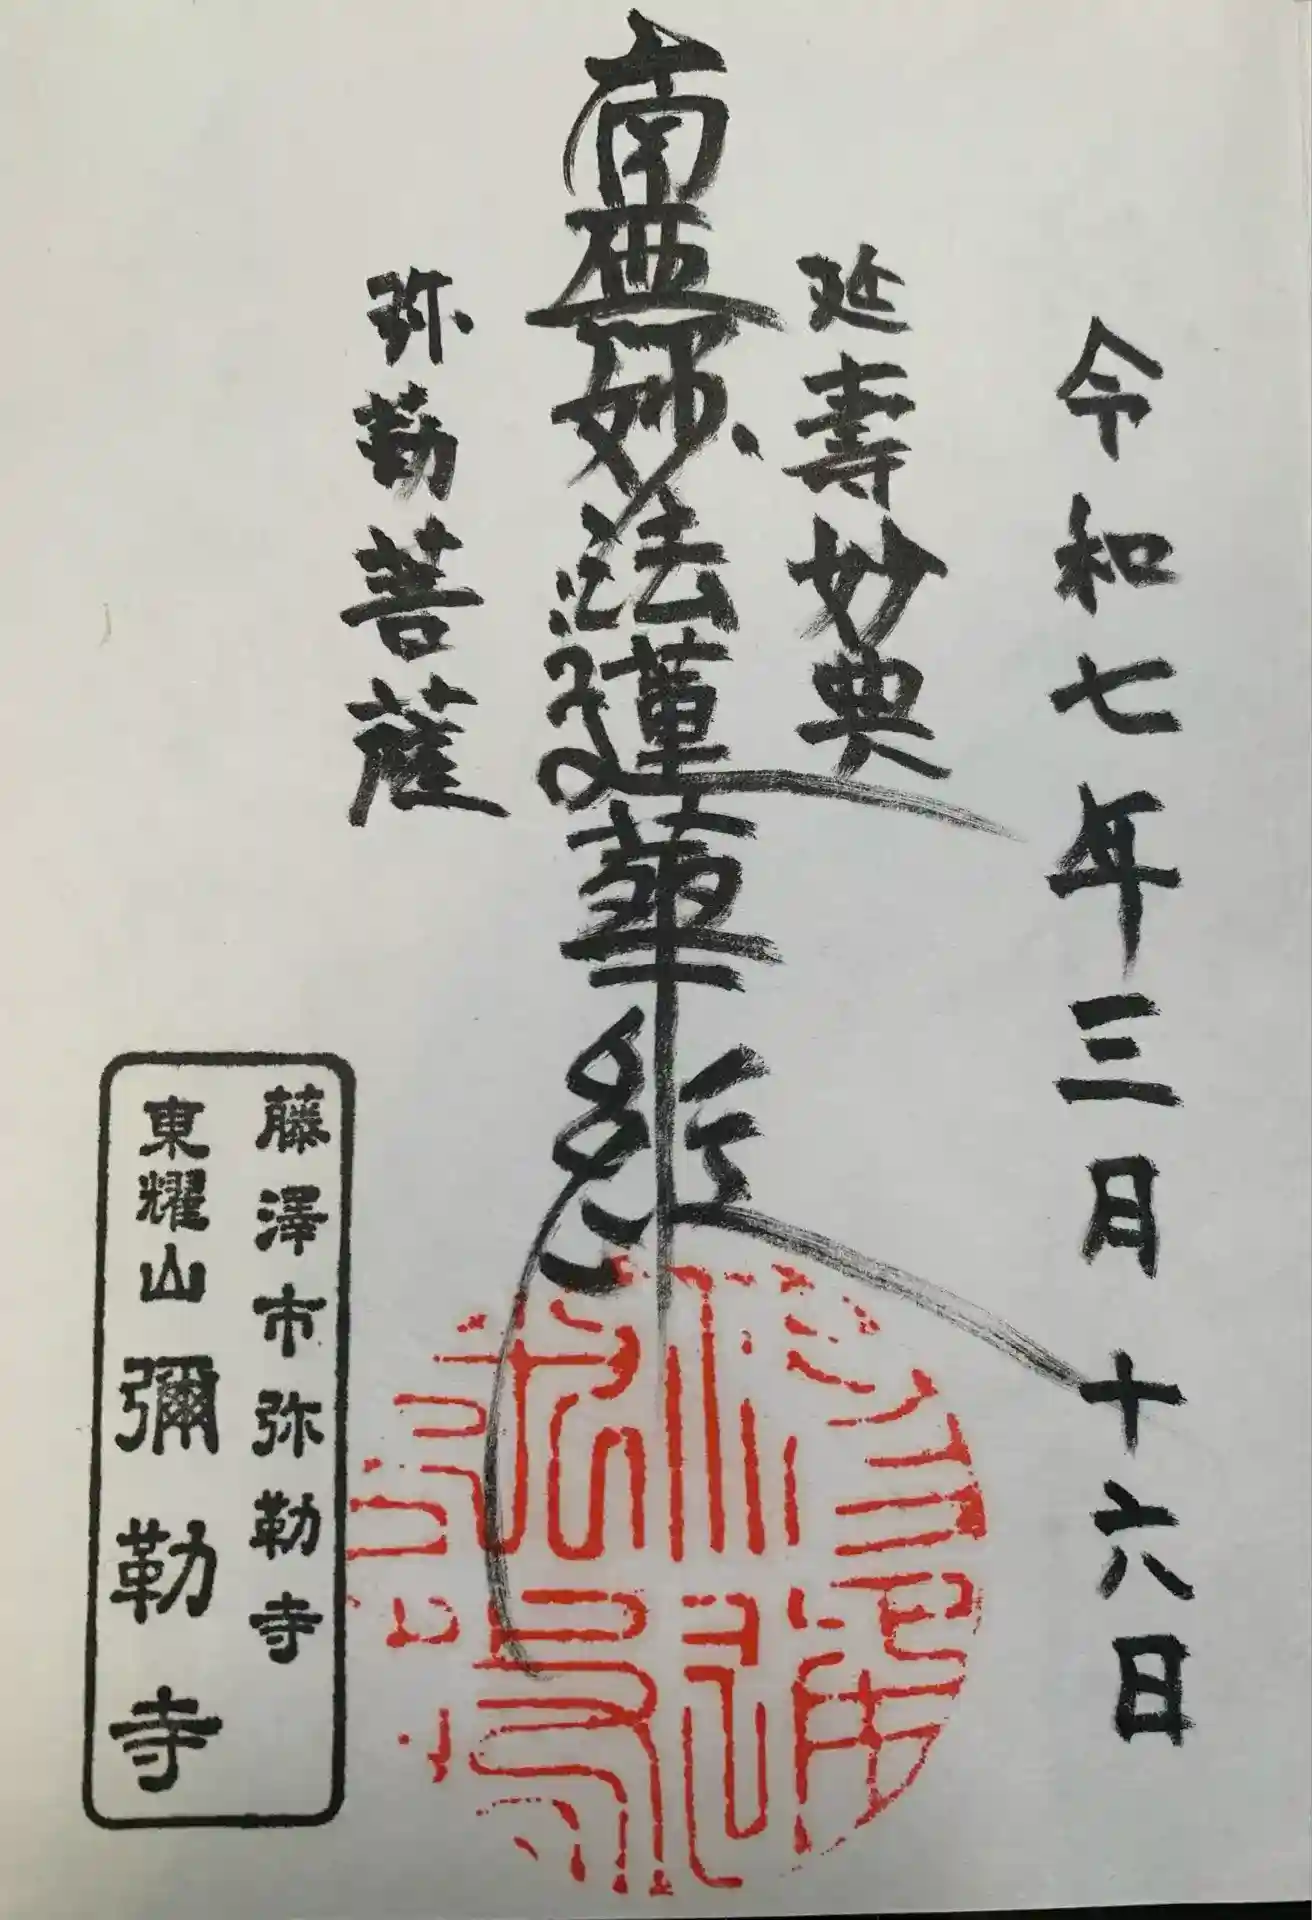 令和七年三月十六日
延壽妙典
南無妙法蓮華経
弥勒菩薩
藤澤市弥勒寺
東耀山彌勒寺